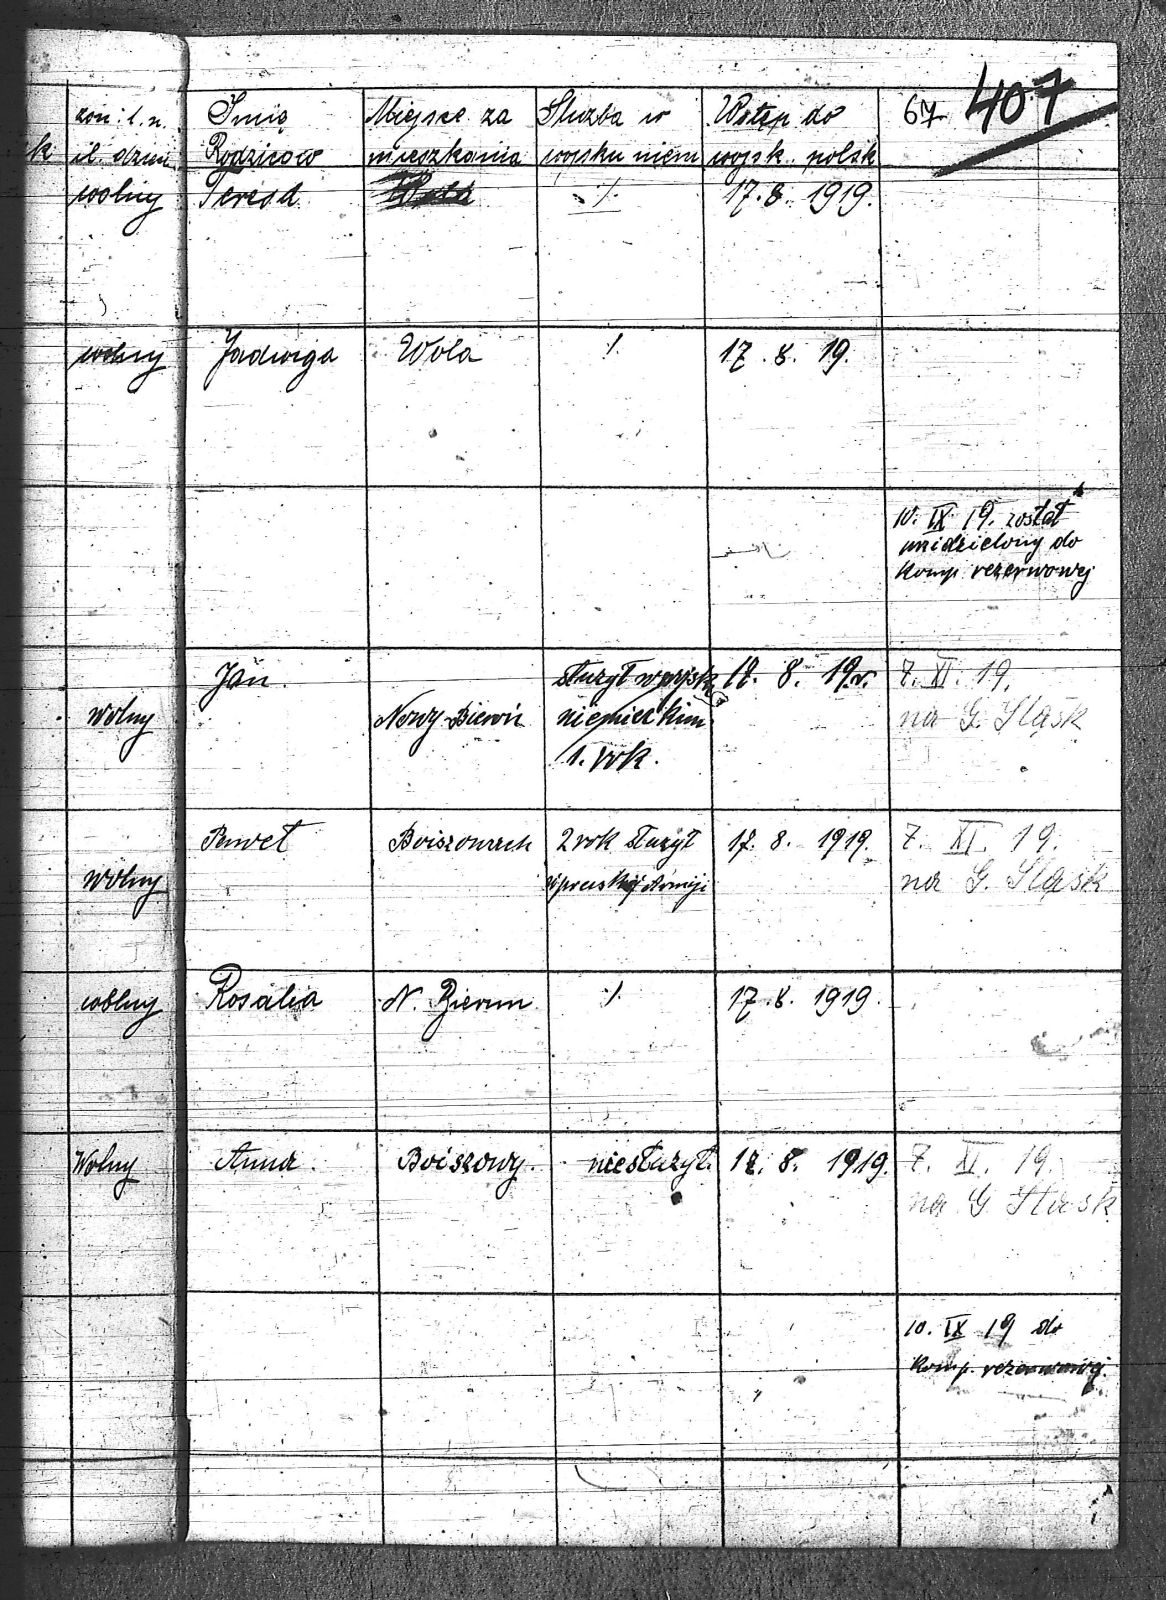 żon: l. n. Imię Miejsce za Służba w Wstęp do 67 407
k il. dzieci Rodziców mieszkania wojsku niem wojsk. polsk
wolny Teresa ·/. 17. 8. 1919.
wolny Jadwiga Wola ·/. 17. 8. 19.
10. IX 19. został
przidzielony do
komp. rezerwowej
Jan. służył w wojsk 17. 8. 19.r. 7. XI. 19.
wolny Nowy Bieruń niemieckim na G. Śląsk
1. rok.
Paweł Boiszowach 2 rok służył 17. 8. 1919. 7. XI. 19.
wolny w pruskiej Armiji na G. Śląsk
wolny Rosalia N. Bierun ·/. 17. 8. 1919.
Wolny Anna. Boiszowy. niesłużył. 17. 8. 1919. 7. XI. 19.
na G. Śląsk
10. IX 19 do
komp. rezerwowej.